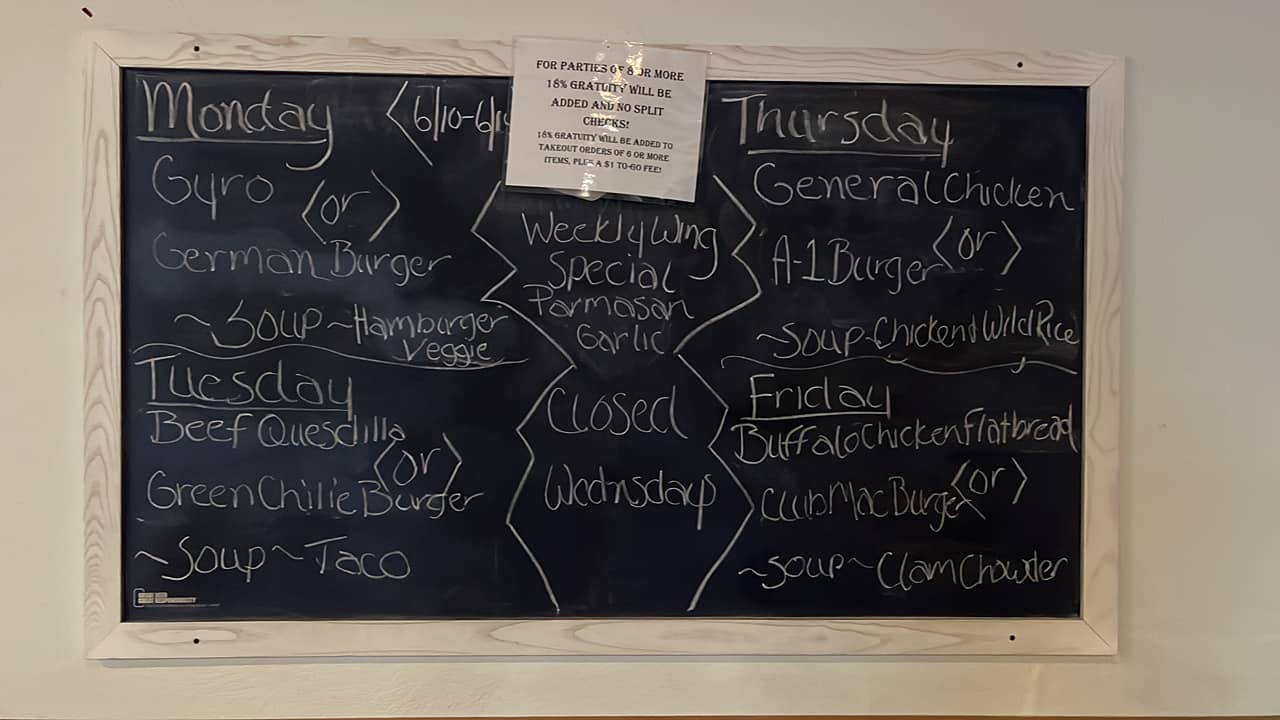 Monday <6/10-6/1
Gyro
<or>
German Burger
~Soup~Hamburger
Veggie
Tuesday
Beef Quesdilla
<or>
Green Chilie Burger
~Soup~Taco
FOR PARTIES OF 8 OR MORE
18% GRATUITY WILL BE
ADDED AND NO SPLIT
CHECKS!
18% GRATUITY WILL BE ADDED TO
TAKEOUT ORDERS OF 6 OR MORE
ITEMS, PLUS A $1 TO-GO FEE!
Weekly Wing
Special
Parmasan
Garlic
Closed
Wednsdays
Thursday
General Chicken
<or>
A-1 Burger
~Soup-Chicken+Wild Rice
Friday
Buffalo Chicken Flatbread
<or>
Club Mac Burger
~Soup~Clam Chowder